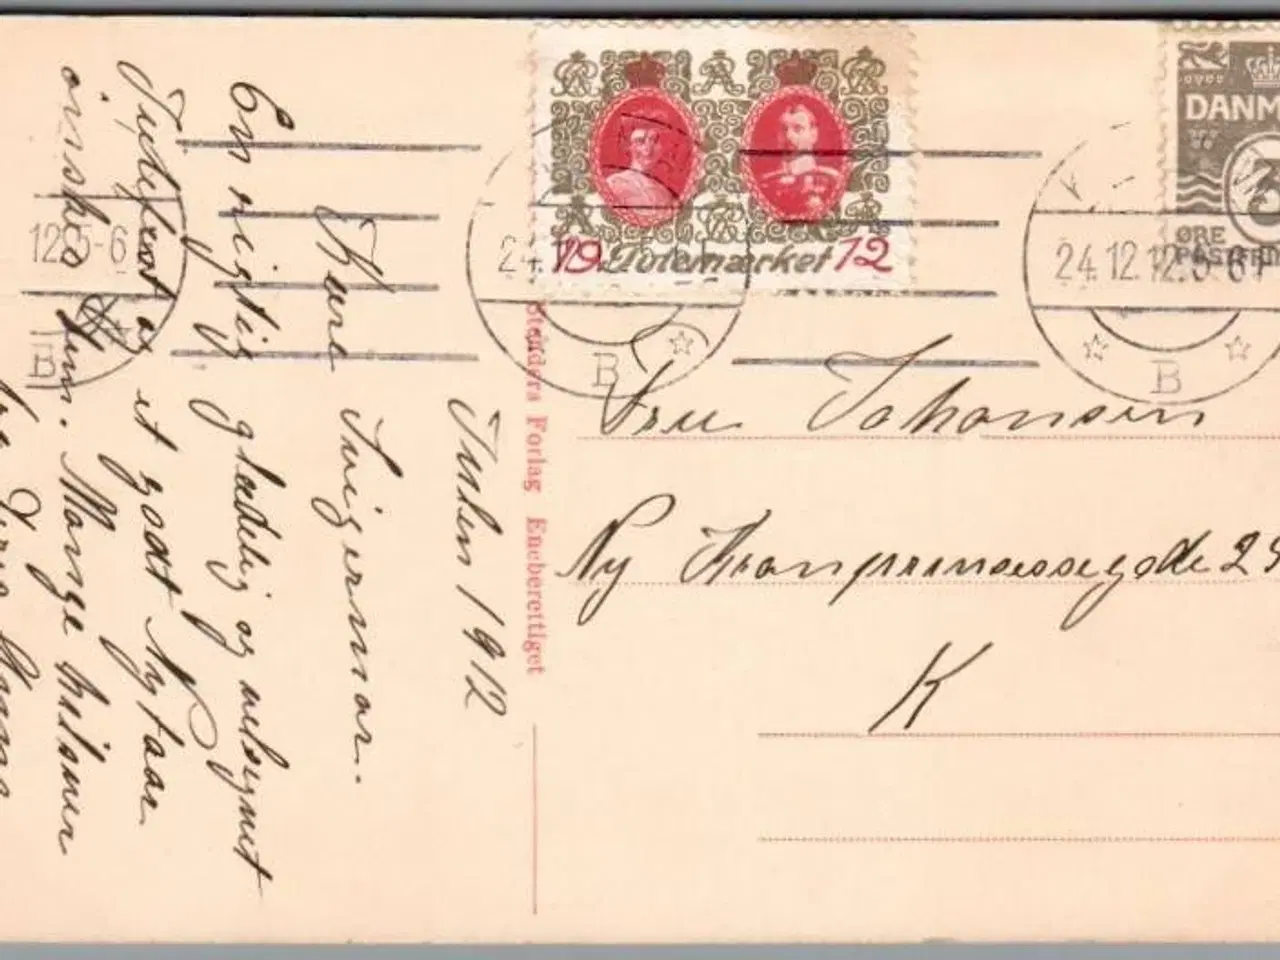 Julen 1912
Kære Svigermor.
En rigtig glædelig og velsignet
Julefest og et godt Nytaar
ønskes Dem. Mange hilsner
fra
19 Julemærket 12
DANM
3
ØRE
POSTFRIM
24.12.12. 5-6
B
24.12.12. 5-6
B
12. 5-6
B
Stenders Forlag Eneberettiget
Fru Johansen
Ny Kronprinsessegade 29
K